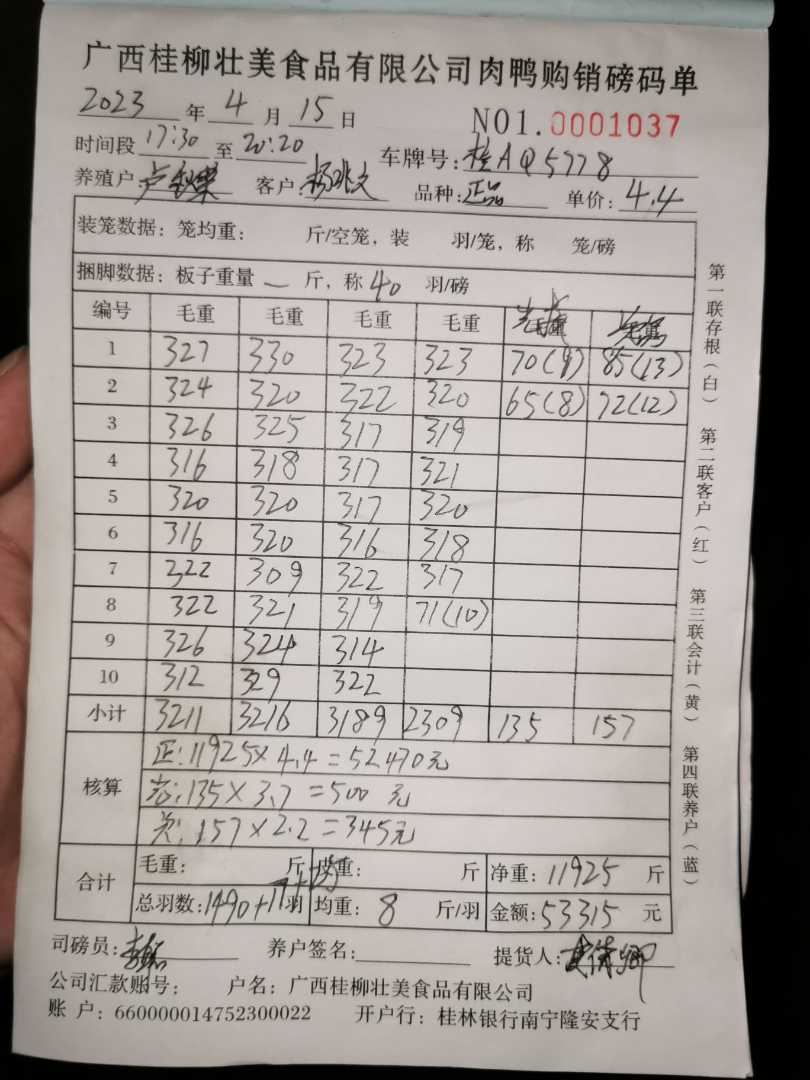 广西桂柳壮美食品有限公司肉鸭购销磅码单
2023 年 4 月 15 日 NO1.0001037
时间段 17:30 至 20:20 车牌号: 桂AQ5778
养殖户: 卢 客户: 杨 品种: 正品 单价: 4.4
装笼数据: 笼均重: 斤/空笼, 装 羽/笼, 称 笼/磅
捆脚数据: 板子重量 — 斤, 称 40 羽/磅
编号 毛重 毛重 毛重 毛重
1 327 330 323 323 70(9) 85(13)
2 324 320 322 320 65(8) 72(12)
3 326 325 317 319
4 316 318 317 321
5 320 320 317 320
6 316 320 316 318
7 322 309 322 317
8 322 321 319 71(10)
9 326 324 314
10 312 329 322
小计 3211 3216 3189 2309 135 157
核算
正: 11925×4.4=52470元
135×3.7=500 元
157×2.2=345元
合计
毛重: 斤 皮重: 斤 净重: 11925 斤
总羽数: 1490+17 羽 均重: 8 斤/羽 金额: 53315 元
司磅员: 养户签名: 提货人:
公司汇款账号: 户名: 广西桂柳壮美食品有限公司
账 户: 660000014752300022 开户行: 桂林银行南宁隆安支行
第一联存根(白) 第二联客户(红) 第三联会计(黄) 第四联养户(蓝)